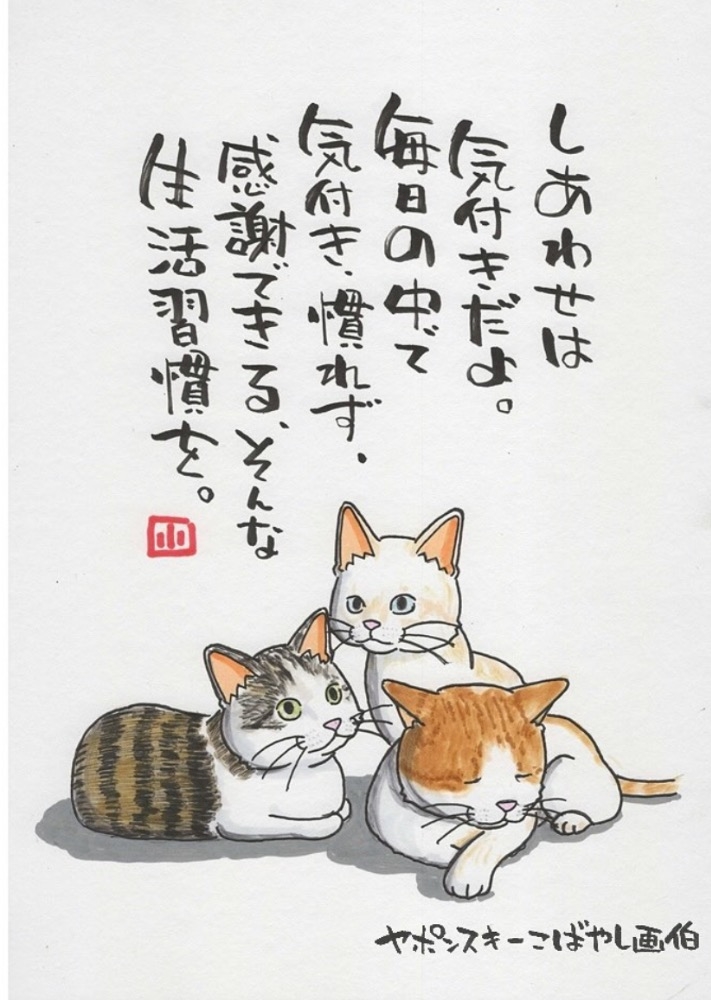 しあわせは
気付きだよ。
毎日の中で
気付き、慣れず、
感謝できる、そんな
生活習慣を。
小
ヤポンスキーこばやし画伯